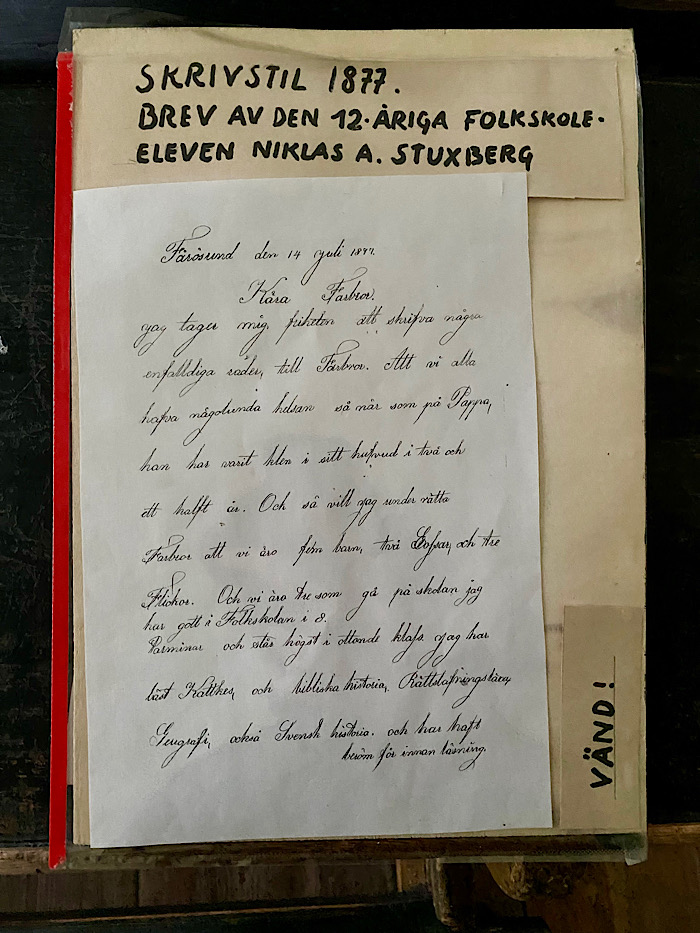 SKRIVSTIL 1877.
BREV AV DEN 12-ÅRIGA FOLKSKOLE-
ELEVEN NIKLAS A. STUXBERG
Fårösund den 14 juli 1877.
Kära Farbror.
jag tager mig friheten att skrifva några
enfalldiga rader, till Farbror. Att vi alla
hafva någolunda helsan så när som på Pappa,
han har varit klen i sitt hufvud i två och
ett halft år. Och så vill jag under rätta
Farbror att vi äro fem barn, två Gossar, och tre
Flickor. Och vi äro tre som gå på skolan jag
har gott i Folkskolan i 8.
Tärminar och står högst i ottonde klass jag har
läst Kattkes, och bibliska historia, Rättstafningslära,
Geugrafi, också Svensk historia. och har haft
beröm för innan läsning.
VÄND!